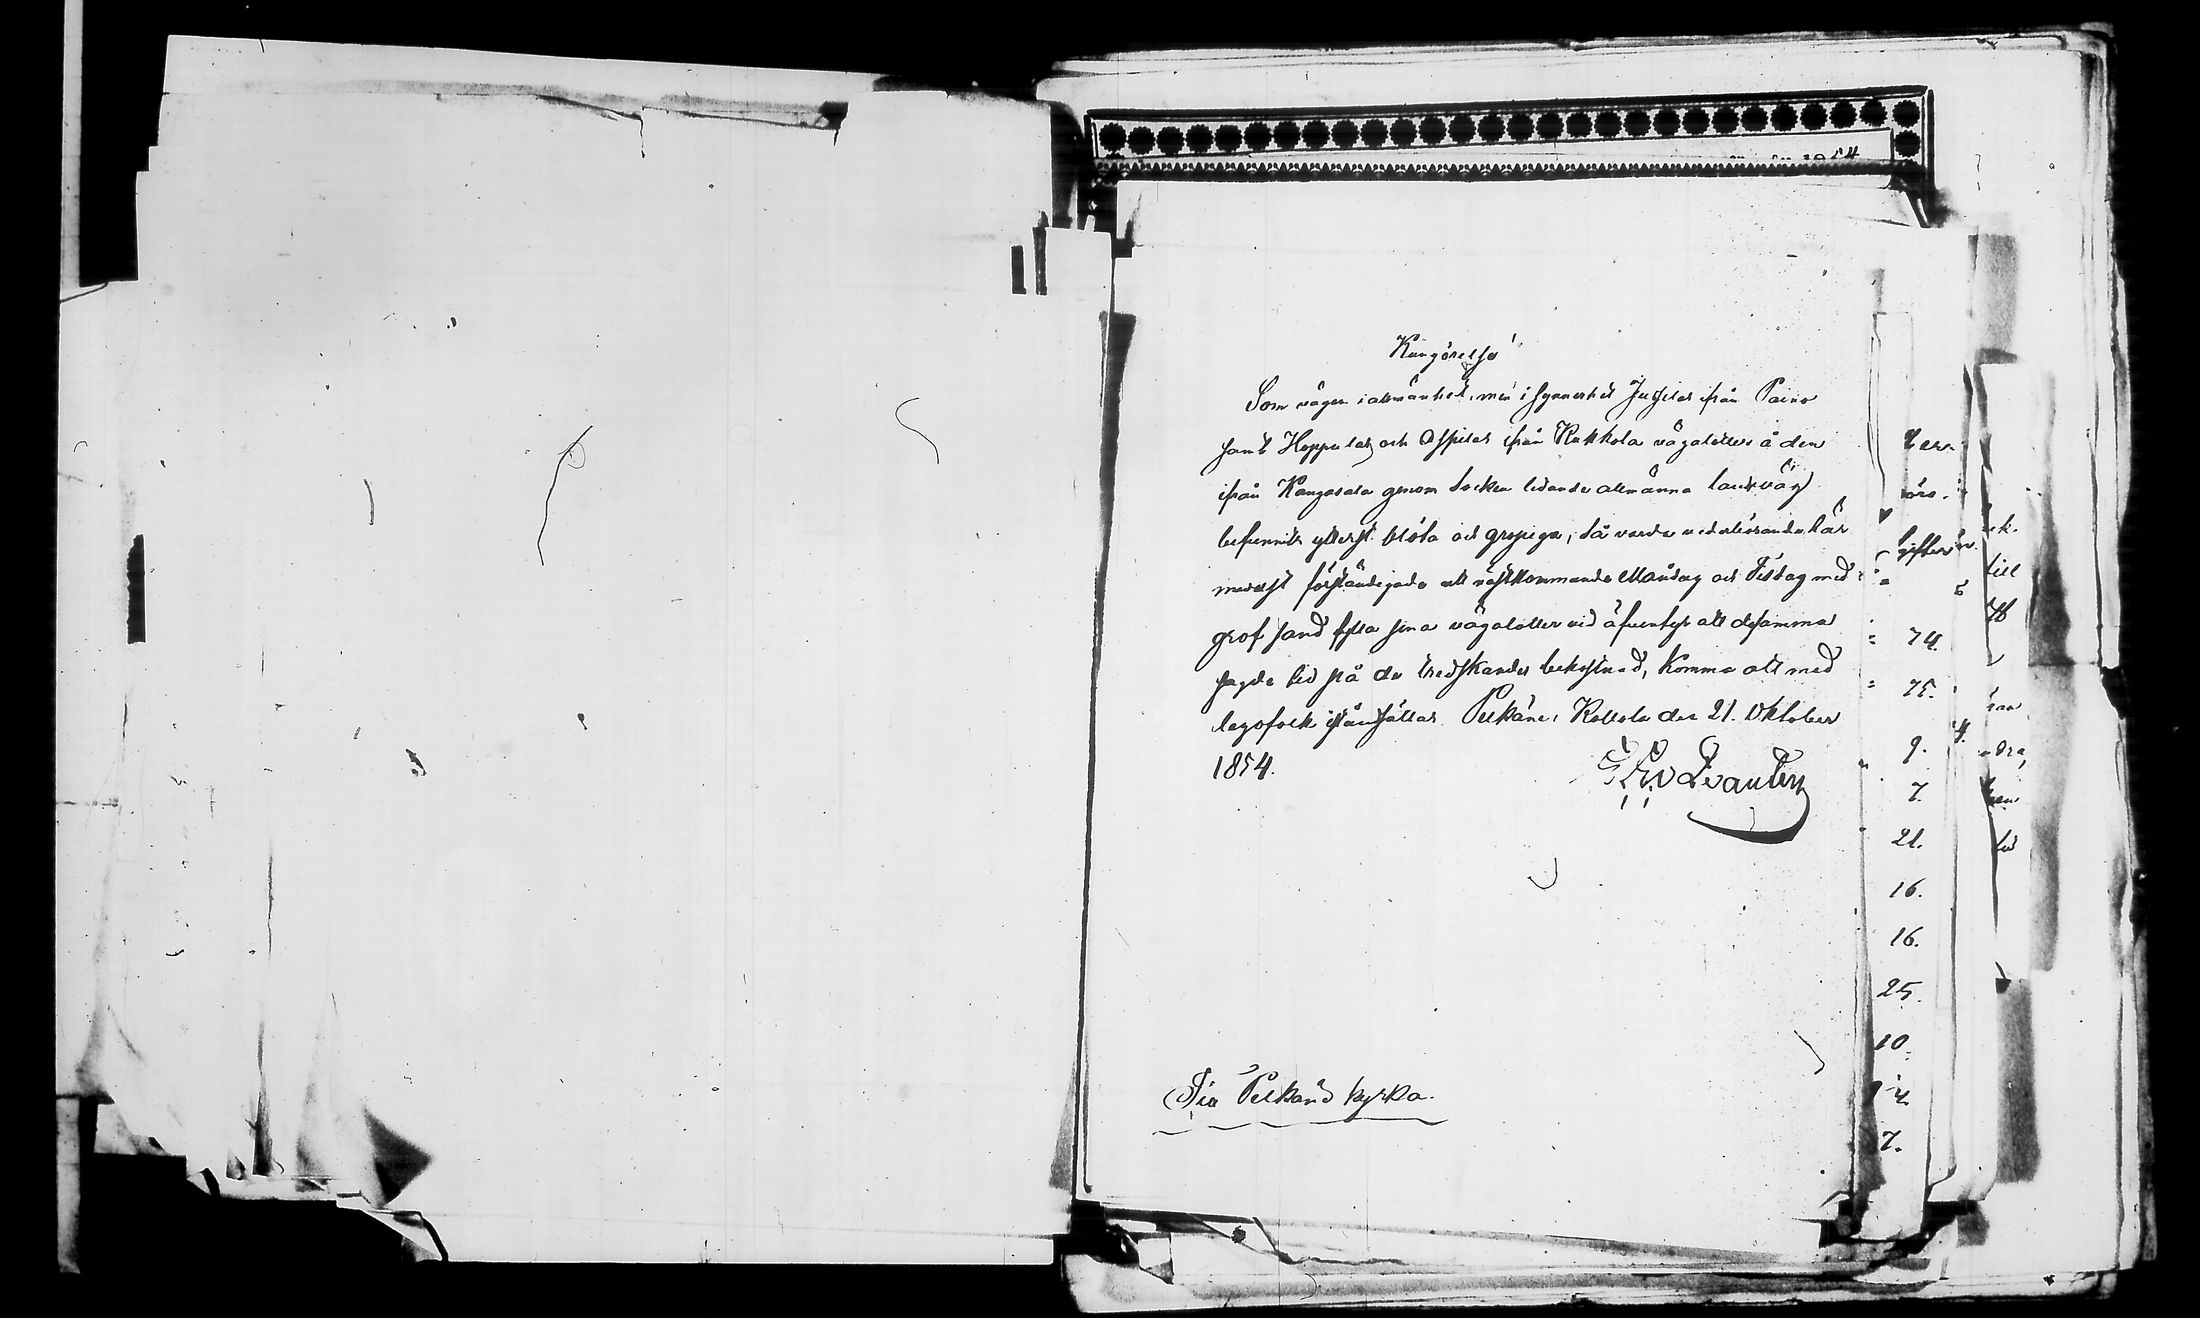 Kungörelse
Som vägen i allmänhet, men i synnerhet Jussilas från Paino
samt Heppulas och Asspilas från Kukkola vägalotter å den
från Kangasala genom Socken ledande allmänna landsväg
befunnits ytterst blöta och gropiga, så varda vederbörande här
medelst förständigade att nästkommande Måndag och Tisdag med
grof sand fylla sina vägalotter vid äfventyr att desamma
sagde tid på de tredskandes bekostnad, komma att med
legofolk iståndsättas. Pelkäne, Kollola den 21. Oktober
1854.
Via Pelkäne kyrka.
74.
75.
9.
7.
21.
16.
16.
25.
10.
7.
till